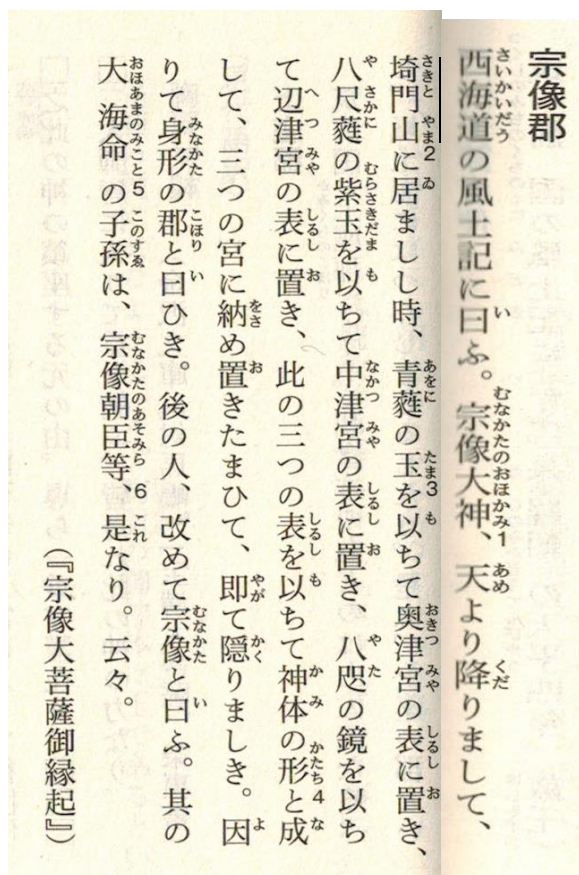 宗像郡
西海道の風土記に曰ふ。宗像大神、天より降りまして、
埼門山に居ましし時、青蕤の玉を以ちて奥津宮の表に置き、
八尺蕤の紫玉を以ちて中津宮の表に置き、八咫の鏡を以ち
て辺津宮の表に置き、此の三つの表を以ちて神体の形と成
して、三つの宮に納め置きたまひて、即て隠りましき。因
りて身形の郡と曰ひき。後の人、改めて宗像と曰ふ。其の
大海命の子孫は、宗像朝臣等、是なり。云々。
(『宗像大菩薩御縁起』)